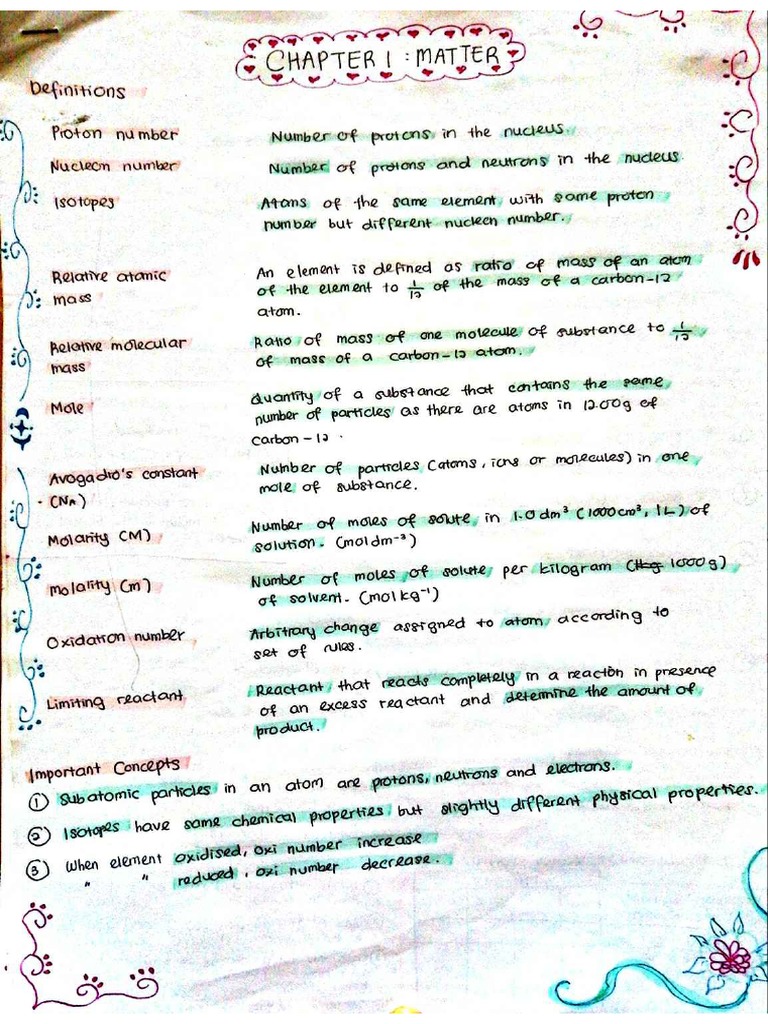 CHAPTER 1 : MATTER
Definitions
Proton number Number of protons in the nucleus.
Nucleon number Number of protons and neutrons in the nucleus.
Isotopes Atoms of the same element, with same proton
number but different nucleon number.
Relative atomic An element is defined as ratio of mass of an atom
mass of the element to 1/12 of the mass of a carbon-12
atom.
Relative molecular Ratio of mass of one molecule of substance to 1/12
mass of mass of a carbon-12 atom.
Mole Quantity of a substance that contains the same
number of particles as there are atoms in 12.00g of
carbon-12.
Avogadro's constant Number of particles (atoms, ions or molecules) in one
(NA) mole of substance.
Molarity (M) Number of moles of solute, in 1.0 dm³ (1000cm³, 1L) of
solution. (mol dm⁻³)
Molality (m) Number of moles of solute per kilogram (1kg 1000g)
of solvent. (mol kg⁻¹)
Oxidation number Arbitrary change assigned to atom, according to
set of rules.
Limiting reactant Reactant that reacts completely in a reaction in presence
of an excess reactant and determine the amount of
product.
Important Concepts
① Subatomic particles in an atom are protons, neutrons and electrons.
② Isotopes have same chemical properties but slightly different physical properties.
③ When element oxidised, oxi number increase
" " reduced, oxi number decrease.